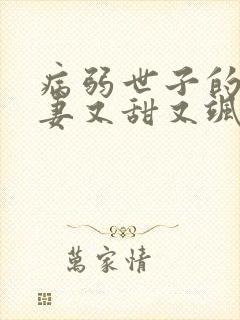 病弱世子的
妻又甜又飒
萬家情